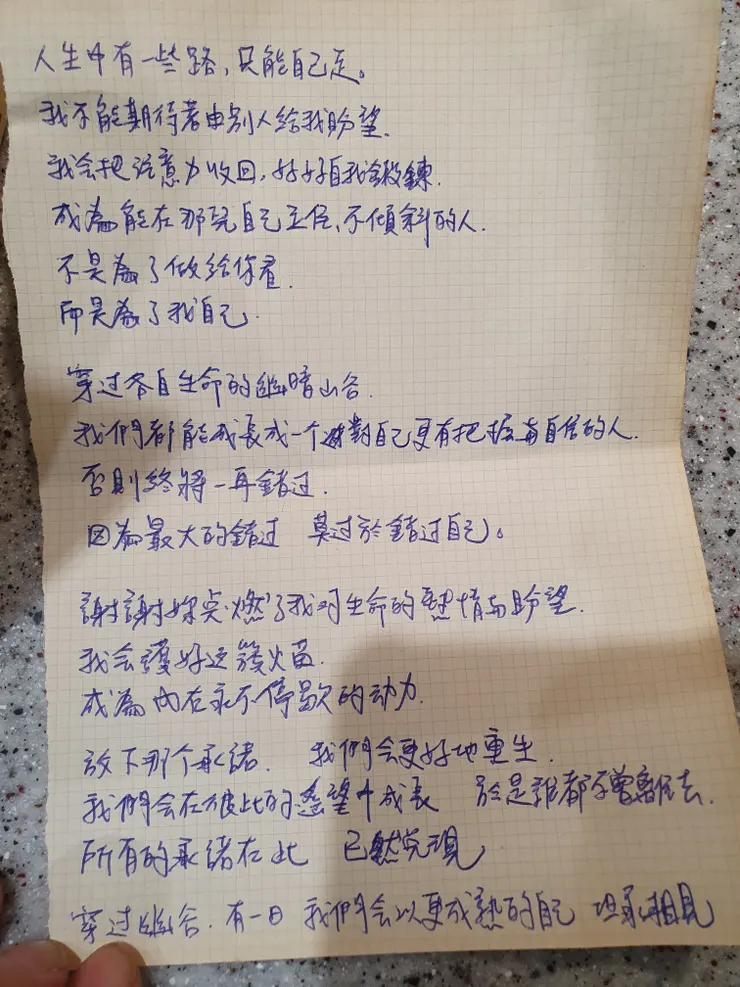 人生中有一些路，只能自己走。
我不能期待著由别人给我盼望.
我会把注意力收回，好好自我鍛鍊.
成為能在那兒自己立住、不傾斜的人.
不是為了做給你看.
而是為了我自己.
穿过各自生命的幽暗山谷.
我們都能成長成一个對自己更有把握与自信的人.
否則終將一再錯过.
因為最大的錯过 莫过於錯过自己。
謝謝妳点燃了我对生命的熱情与盼望.
我会護好这簇火苗.
成為内在永不停歇的动力.
放下那个承諾. 我們会更好地重生.
我們会在彼此的遙望中成長 於是誰都不曾離去.
所有的承諾在此 已然兌現
穿过幽谷. 有一日 我們会以更成熟的自己 坦承相見